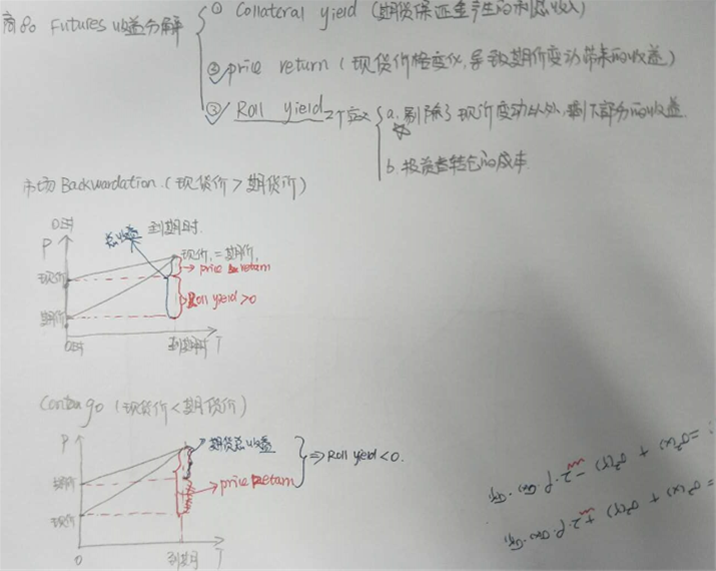 商品 Futures 收益分解
① Collateral yield (期货保证金产生的利息收入)
② price return (现货价格变化,导致期价变动带来的收益)
③ Roll yield 2个定义
a. 剔除了现价变动以外,剩下部分的收益.
b. 投资者转仓的成本
市场 Backwardation. (现货价 > 期货价)
0时
P
总收益
到期时.
现价, = 期价,
price return
现价
Roll yield > 0
期价
0时
到期时
T
Contango (现货价 < 期货价)
P
期货总收益
⇒ Roll yield < 0.
期价
price Return
现价
0
到期
T